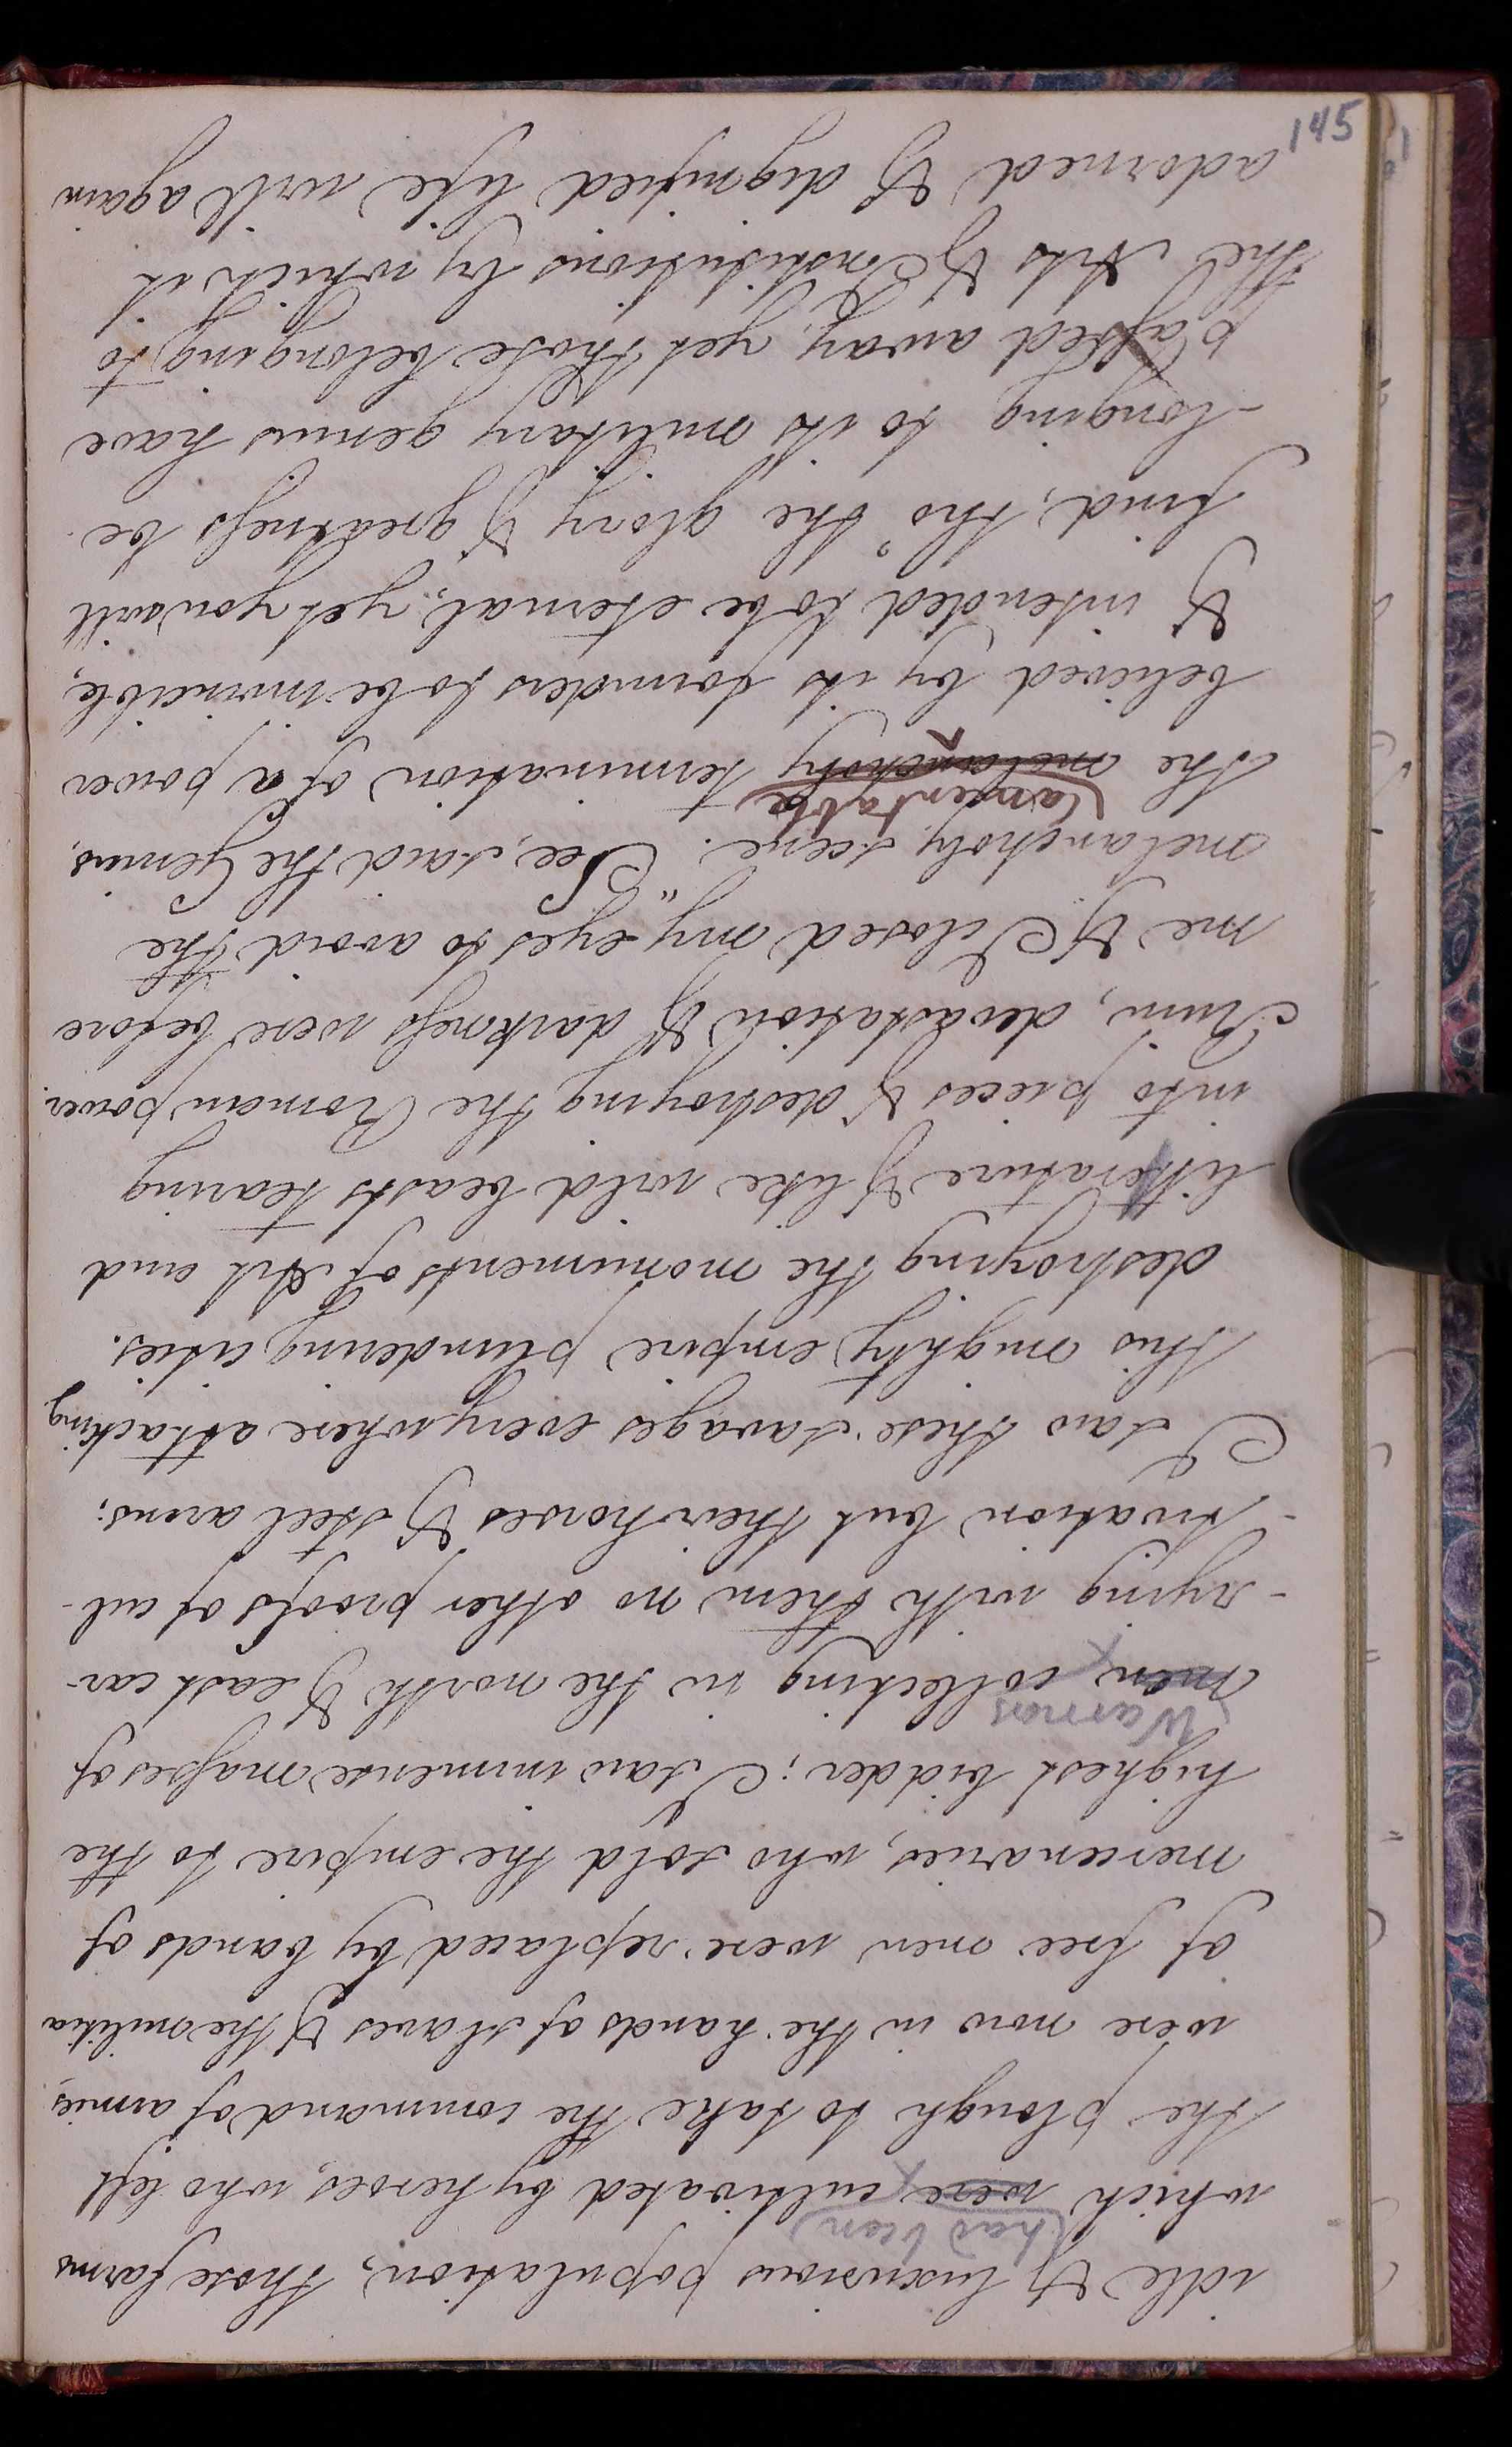 idle & luxurious population; those farms
(had been)
which were cultivated by heroes, who left
the plough to take the command of armies,
were now in the hands of slaves & the militia
of free men were replaced by bands of
mercenaries, who sold the empire to the
highest bidder; I saw immense masses of
Warriors
men collecting in the north & east car-
-rying with them no other proofs of cul-
-tivation but their horses & steel arms;
I saw these savages everywhere attacking
this mighty empire plundering cities.
destroying the monuments of Art and
litterature & like wild beasts tearing
into pieces & destroying the Roman power.
Ruin, devastation & darkness were before
me & I closed my eyes to avoid the
melancholy scene. "See, said the Genius,
(lamentable
the melancholy termination of a power
believed by its founders to be invincible,
& intended to be eternal; yet you will
find, tho' the glory & greatness be-
-longing to its military genius have
passed away, yet those belonging to
the Arts & Institutions by which it
adorned & dignified life will again
145